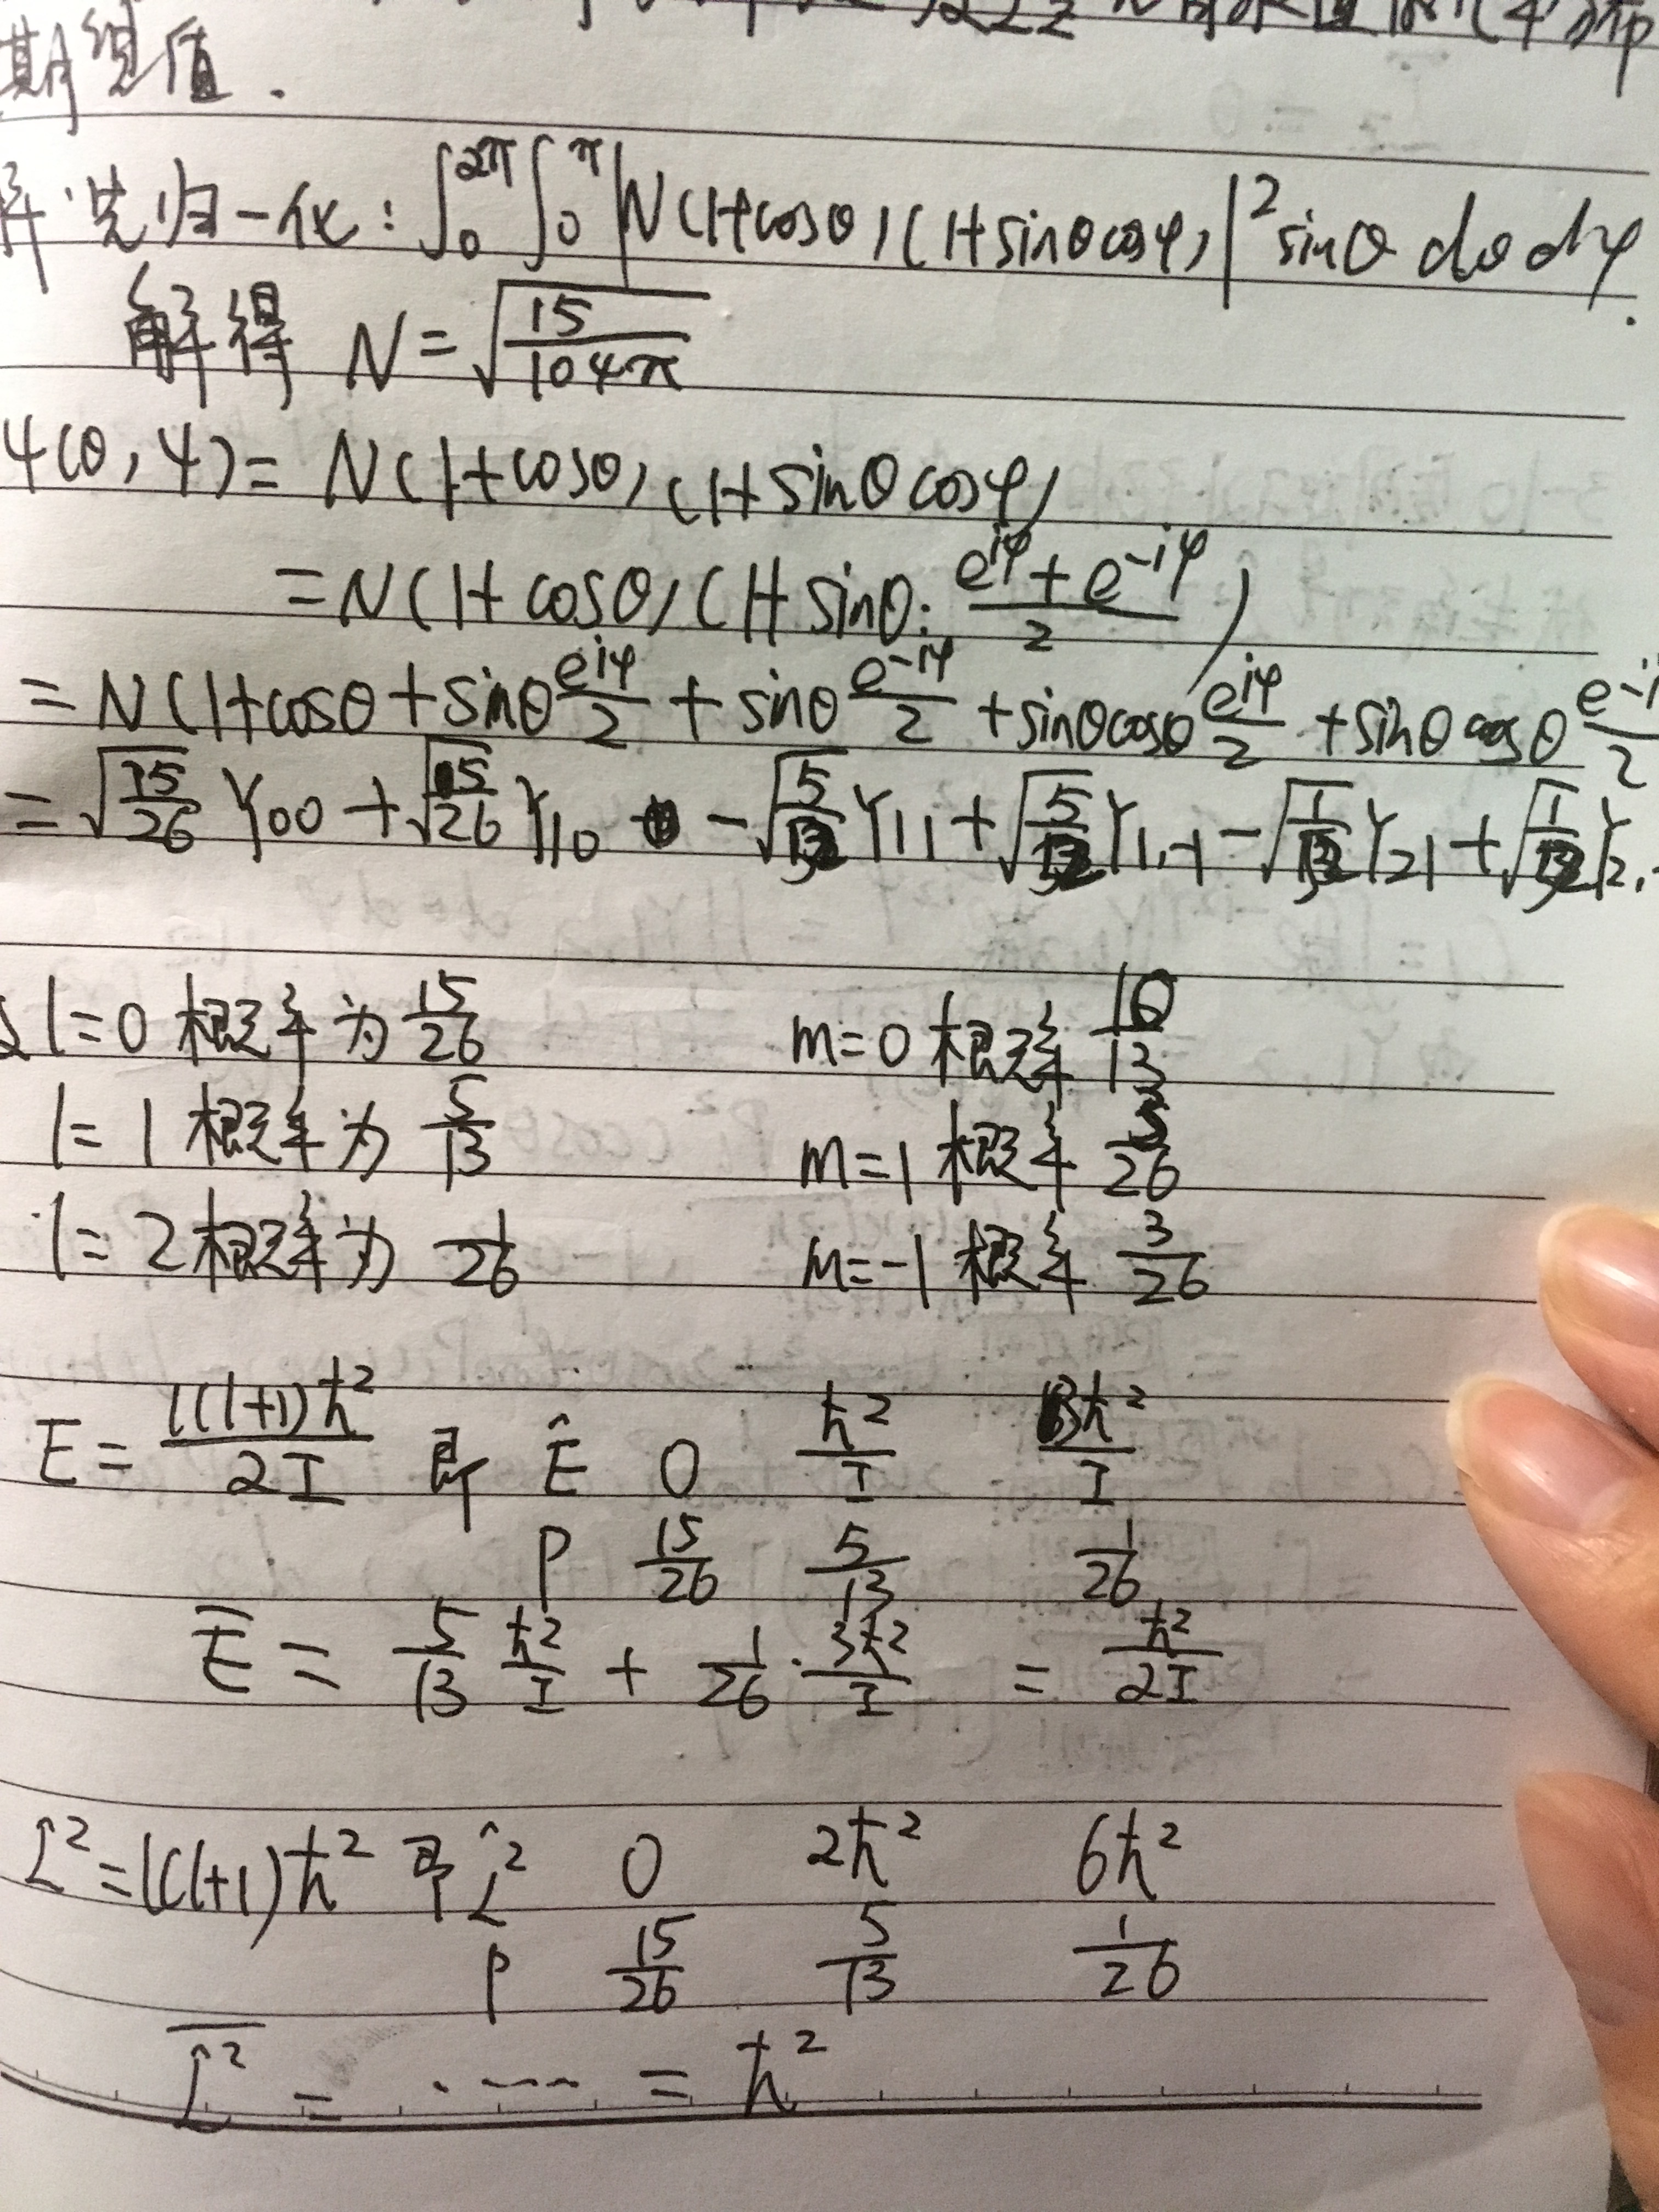 期望值.
解:先归一化: ∫₀^{2π}∫₀^{π}|N(1+cosθ)(1+sinθcosφ)|² sinθ dθ dφ.
解得 N = √(15/104π)
ψ(θ,φ) = N(1+cosθ)(1+sinθcosφ)
= N(1+cosθ)(1+sinθ·(e^{iφ}+e^{-iφ})/2)
= N(1+cosθ+sinθ e^{iφ}/2 + sinθ e^{-iφ}/2 + sinθcosθ e^{iφ}/2 + sinθcosθ e^{-i}/2
= √(15/26) Y₀₀ + √(5/26) Y₁₀ - √(5/) Y₁₁ + √(5/) Y₁,₋₁ - √(1/) Y₂₁ + √(1/) Y₂,
l=0 概率为 15/26 m=0 概率 10/13
l=1 概率为 5/13 m=1 概率 3/26
l=2 概率为 1/26 m=-1 概率 3/26
E = l(l+1)ħ²/2I 即 Ê 0 ħ²/I 3ħ²/I
P 15/26 5/13 1/26
Ē = 5/13 ħ²/I + 1/26 · 3ħ²/I = ħ²/2I
L̂² = l(l+1)ħ² 即 L̂² 0 2ħ² 6ħ²
P 15/26 5/13 1/26
L̄² = ····· = ħ²